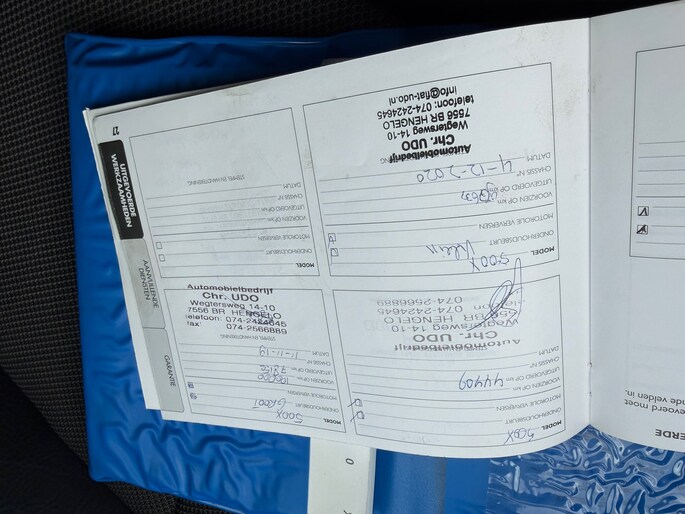 MODEL 500X
ONDERHOUDSBEURT
MOTOROLIE VERVERSEN
UITGEVOERD OP km 44409
VOORZIEN OP km
CHASSIS N°
DATUM
Automobielbedrijf
Chr. UDO
Wegtersweg 14-10
7556 BR HENGELO
telefoon 074-2424645
074-2566889
MODEL 500X
ONDERHOUDSBEURT
MOTOROLIE VERVERSEN
UITGEVOERD OP km
VOORZIEN OP km
CHASSIS N°
DATUM 11-11-19
STEMPEL EN HANDTEKENING
Automobielbedrijf
Chr. UDO
Wegtersweg 14-10
7556 BR HENGELO
telefoon: 074-2424645
fax: 074-2566889
MODEL 500X
ONDERHOUDSBEURT Klein
MOTOROLIE VERVERSEN
UITGEVOERD OP km
VOORZIEN OP km
CHASSIS N°
DATUM 4-12-2020
Automobielbedrijf
Chr. UDO
Wegtersweg 14-10
7556 BR HENGELO
telefoon: 074-2424645
info@fiat-udo.nl
MODEL
ONDERHOUDSBEURT
MOTOROLIE VERVERSEN
UITGEVOERD OP km
VOORZIEN OP km
CHASSIS N°
DATUM
STEMPEL EN HANDTEKENING
GARANTIE
AANVULLENDE
DIENSTEN
UITGEVOERDE
WERKZAAMHEDEN
27
ERDE
evoerd moet
nde velden in.